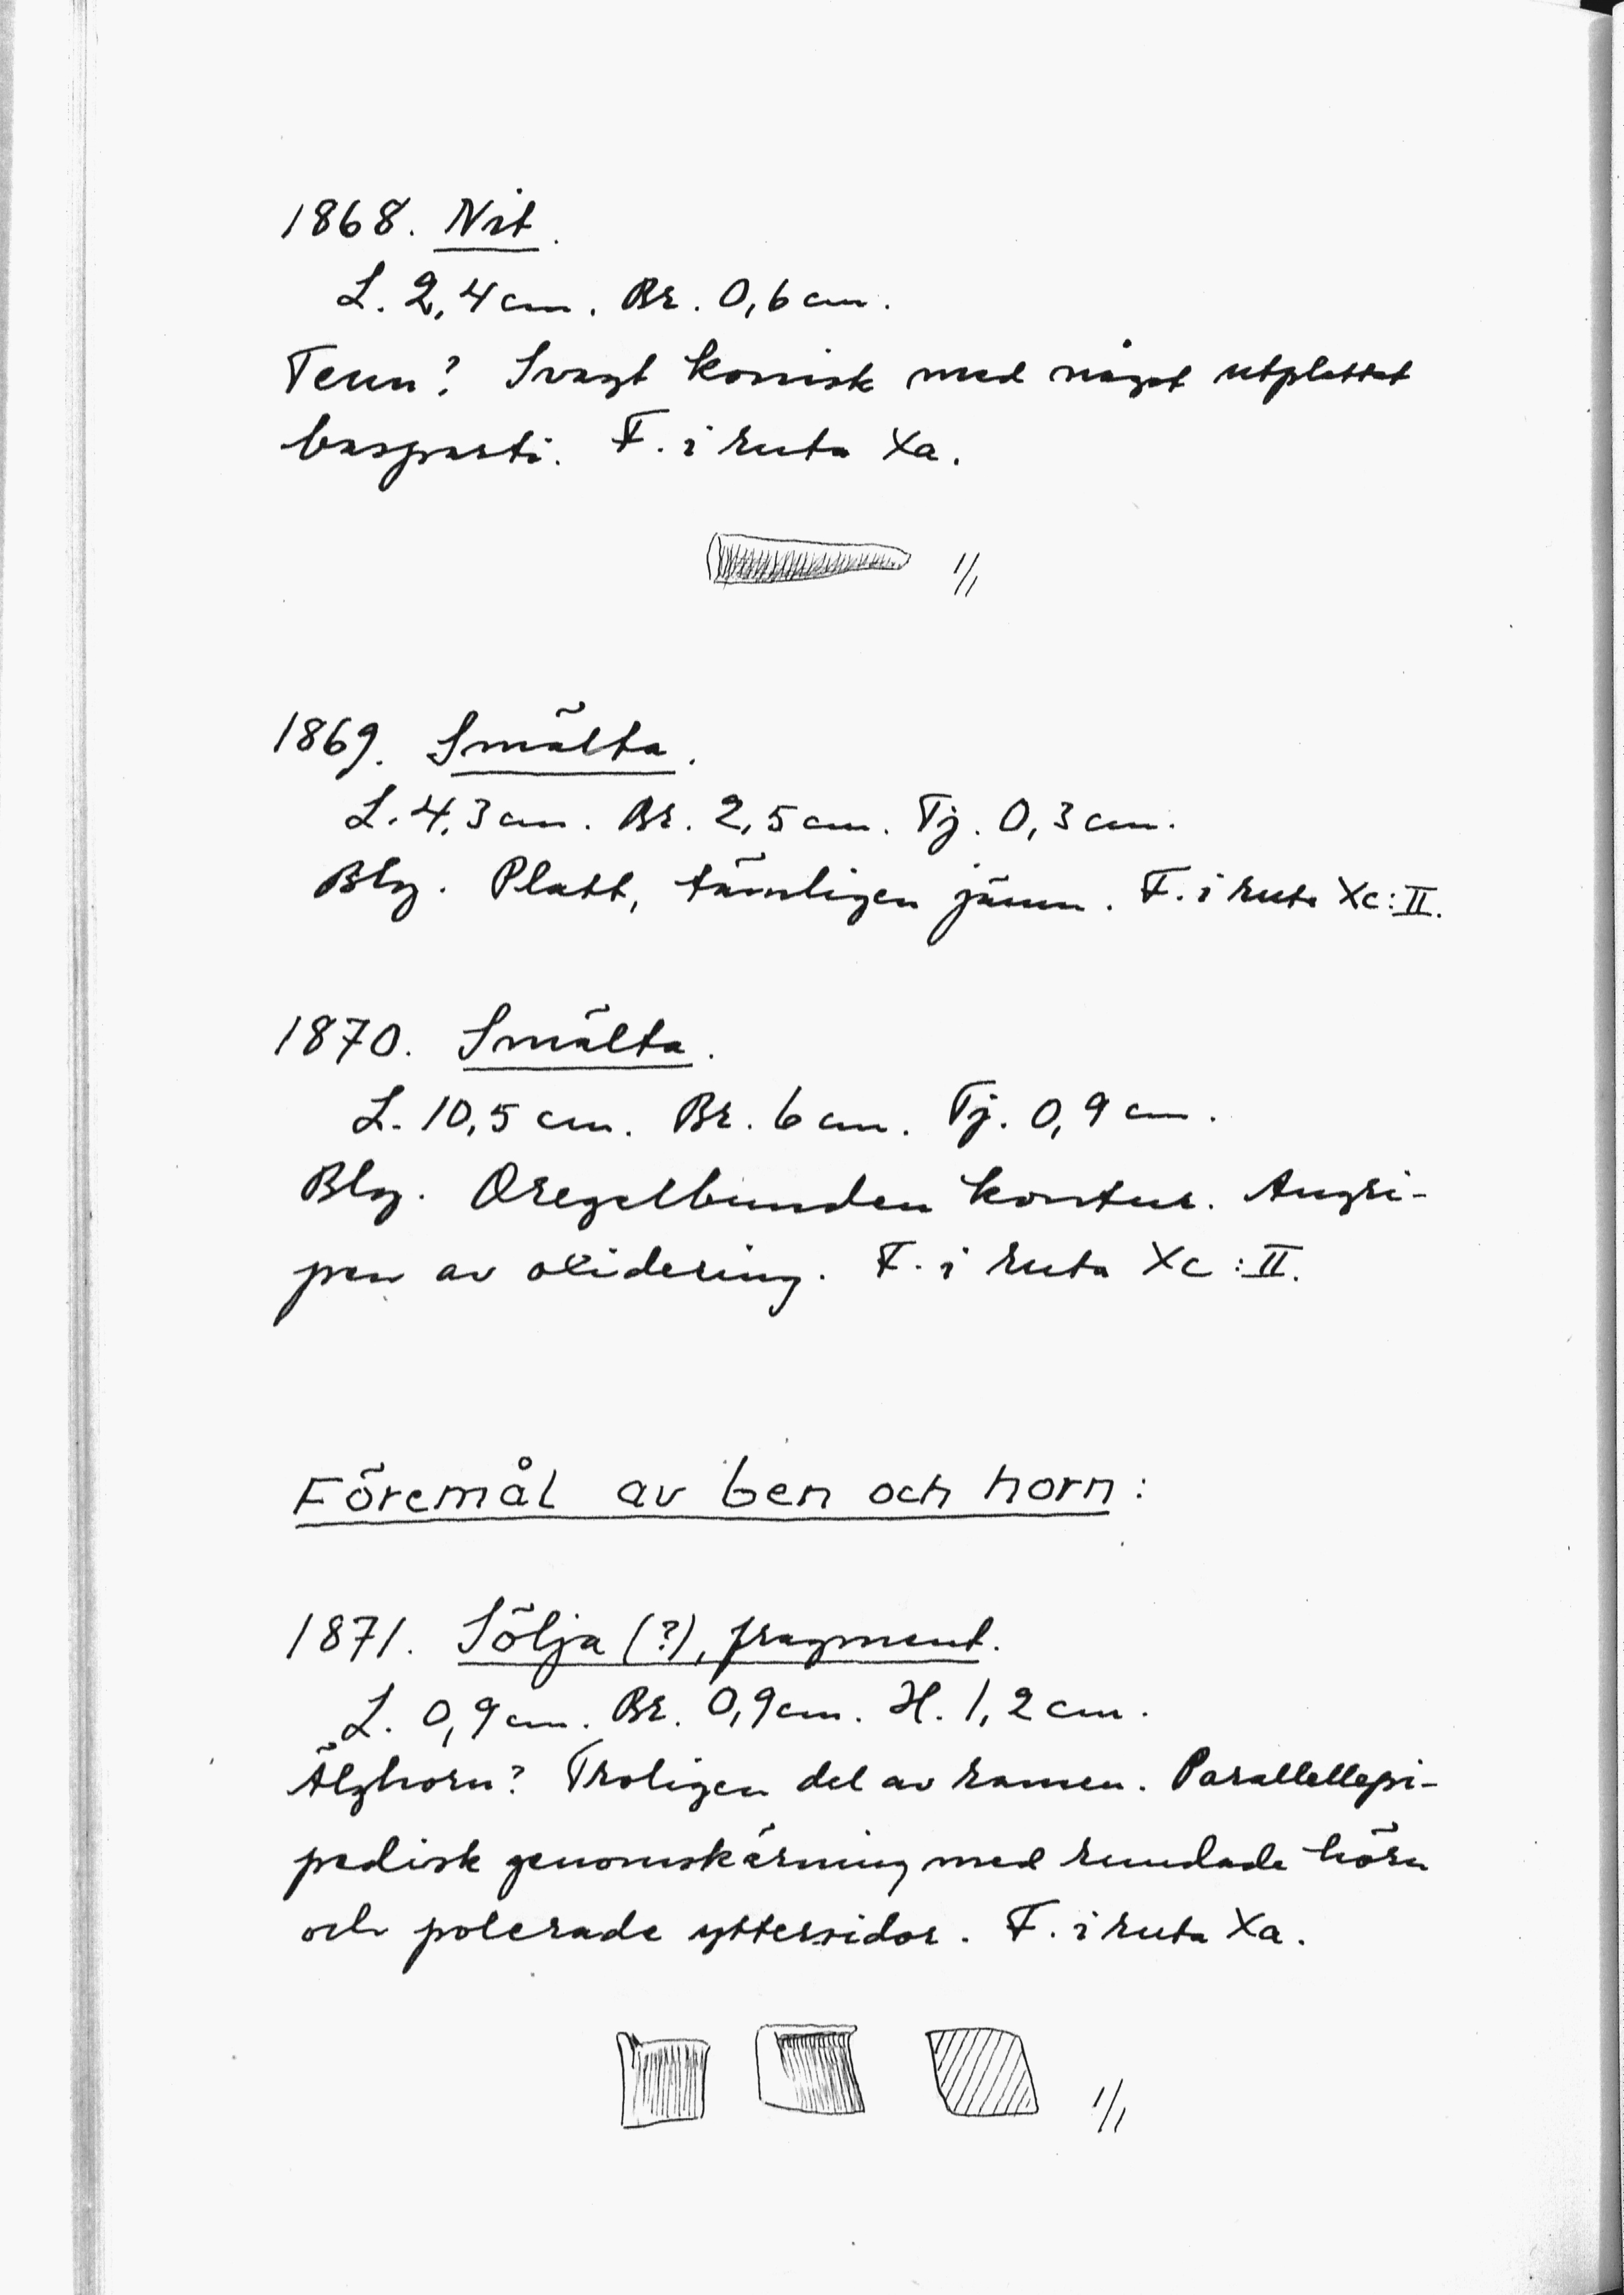 1868. Nit.
L. 2,4 cm. Br. 0,6 cm.
Tenn? Svagt konisk med något utplattat
basparti. F. i ruta Xa.
1/1
1869. Smälta.
L. 4,3 cm. Br. 2,5 cm. Tj. 0,3 cm.
Bly. Platt, tämligen jämn. F. i ruta Xc:II.
1870. Smälta.
L. 10,5 cm. Br. 6 cm. Tj. 0,9 cm.
Bly. Oregelbunden kontur. Angri-
pen av oxidering. F. i ruta Xc:II.
Föremål av ben och horn:
1871. Sölja (?), fragment.
L. 0,9 cm. Br. 0,9 cm. H. 1,2 cm.
Älghorn? Troligen del av ramen. Parallellepi-
pedisk genomskärning med rundade hörn
och polerade yttersidor. F. i ruta Xa.
1/1